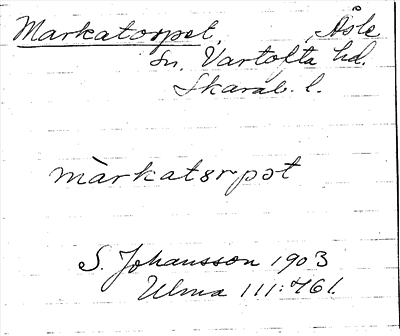 Markatorpet, Åsle
sn, Vartofta hd.
Skarab. l.
màrkatorpət
S. Johansson 1903
Ulma 111:461.